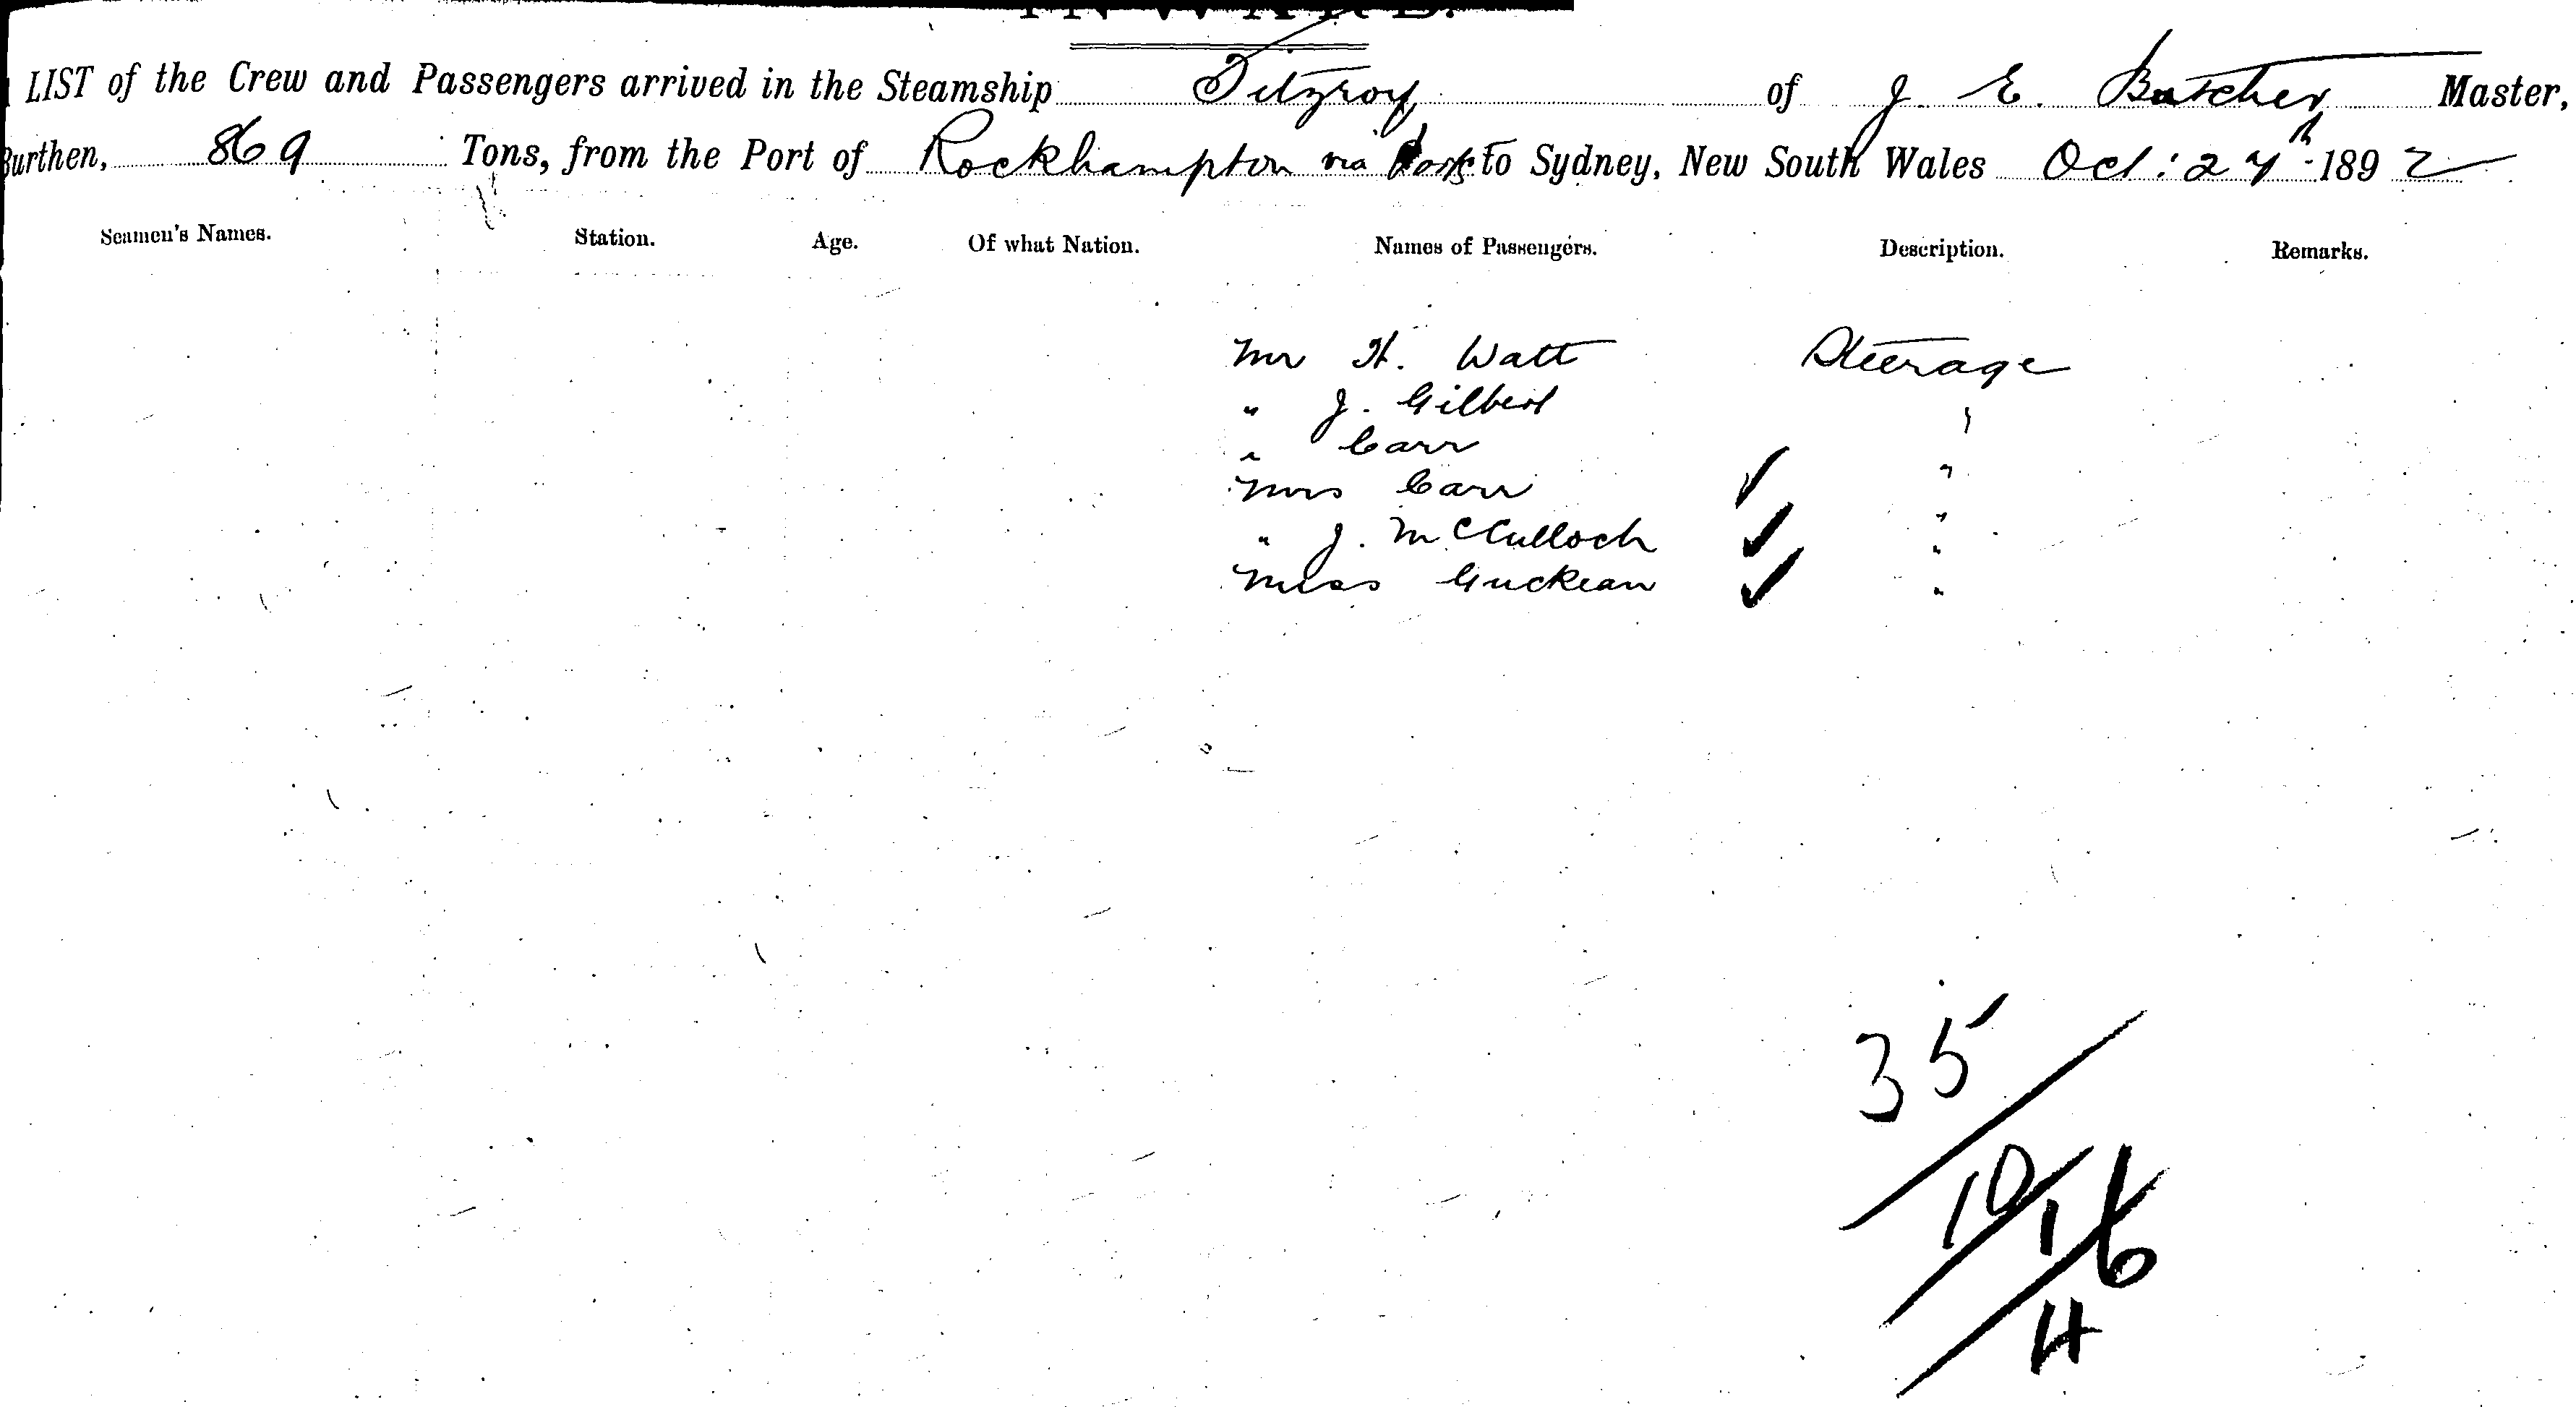 INWARD.
LIST of the Crew and Passengers arrived in the Steamship Fitzroy of J. E. Butcher Master,
Burthen, 869 Tons, from the Port of Rockhampton via Ports to Sydney, New South Wales Oct: 27th 1892
Seamen's Names. Station. Age. Of what Nation. Names of Passengers. Description. Remarks.
Mr H. Watt Steerage
" J. Gilbert "
" Carr "
Mrs Carr "
" J. McCulloch "
Miss Guckean "
35
10 16
4